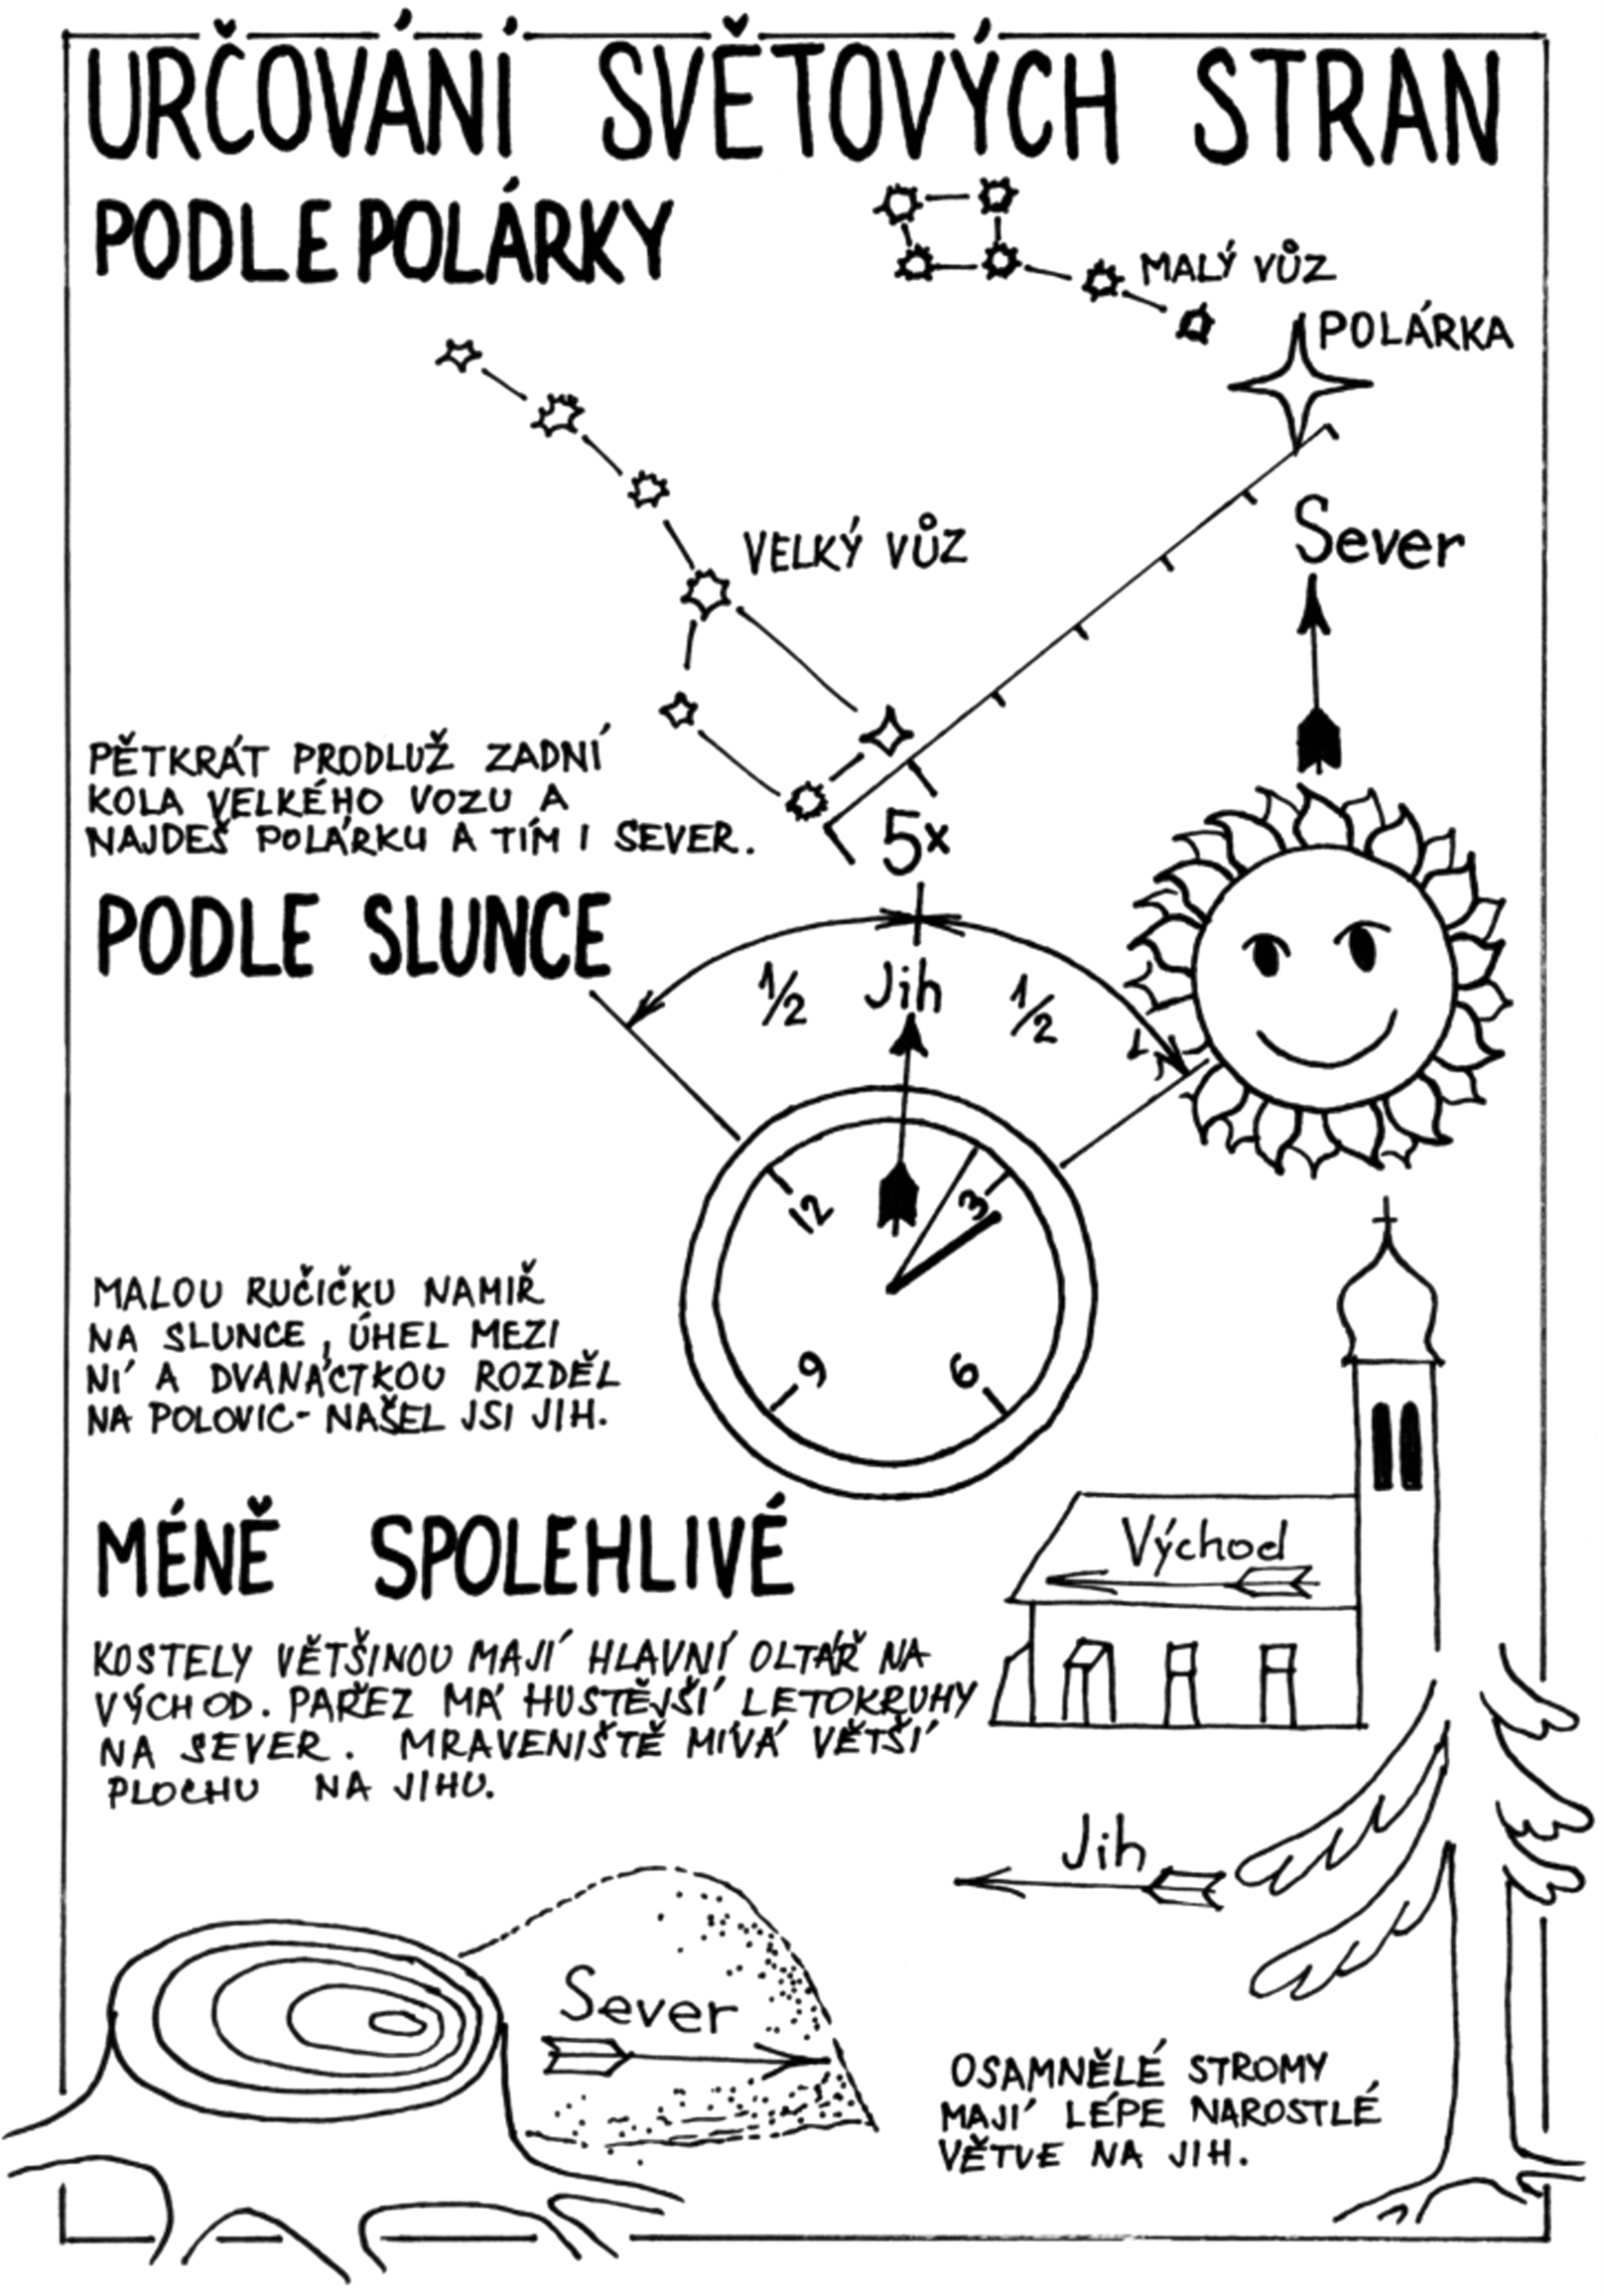 URČOVÁNÍ SVĚTOVÝCH STRAN
PODLE POLÁRKY
MALÝ VŮZ
POLÁRKA
Sever
VELKÝ VŮZ
PĚTKRÁT PRODLUŽ ZADNÍ
KOLA VELKÉHO VOZU A
NAJDEŠ POLÁRKU A TÍM I SEVER.
5x
PODLE SLUNCE
1/2 Jih 1/2
12 3
9 6
MALOU RUČIČKU NAMIŘ
NA SLUNCE, ÚHEL MEZI
NÍ A DVANÁCTKOU ROZDĚL
NA POLOVIC- NAŠEL JSI JIH.
MÉNĚ SPOLEHLIVÉ
Východ
KOSTELY VĚTŠINOU MAJÍ HLAVNÍ OLTÁŘ NA
VÝCHOD. PAŘEZ MÁ HUSTĚJŠÍ LETOKRUHY
NA SEVER. MRAVENIŠTĚ MÍVÁ VĚTŠÍ
PLOCHU NA JIHU.
Jih
Sever
OSAMNĚLÉ STROMY
MAJÍ LÉPE NAROSTLÉ
VĚTVE NA JIH.